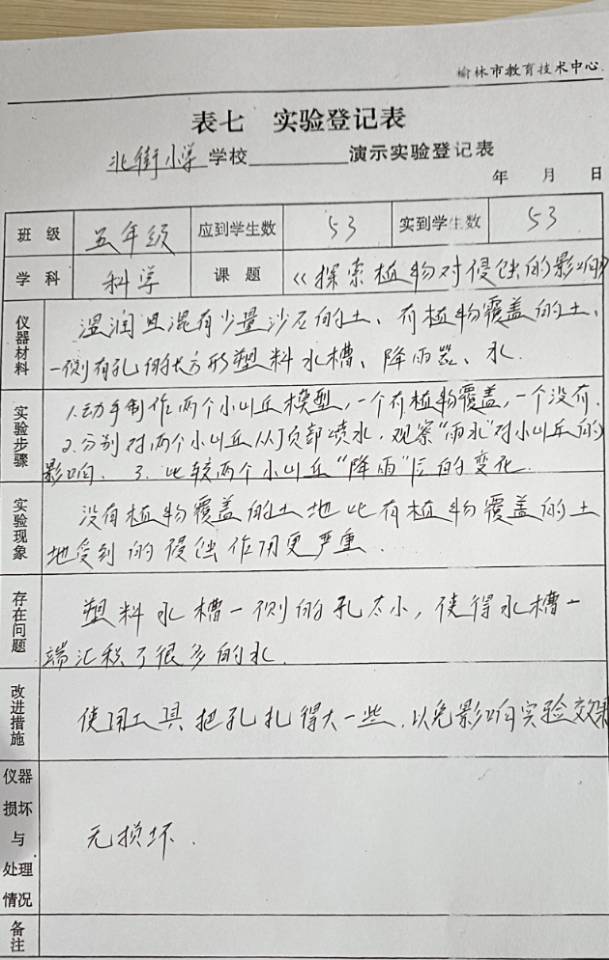 榆林市教育技术中心
表七 实验登记表
北街小学学校________演示实验登记表
年 月 日
班 级 五年级 应到学生数 53 实到学生数 53
学 科 科学 课 题 《探索植物对侵蚀的影响》
仪器材料
湿润且混有少量沙石的土、有植物覆盖的土、
一侧有孔的长方形塑料水槽、降雨器、水.
实验步骤
1.动手制作两个小山丘模型,一个有植物覆盖,一个没有.
2.分别对两个小山丘从顶部喷水,观察“雨水”对小山丘的
影响. 3.比较两个小山丘“降雨”后的变化.
实验现象
没有植物覆盖的土地比有植物覆盖的土
地受到的侵蚀作用更严重.
存在问题
塑料水槽一侧的孔太小,使得水槽一
端汇积了很多的水.
改进措施
使用工具把孔扎得大一些.以免影响实验效果
仪器
损坏
与
处理
情况
无损坏.
备注